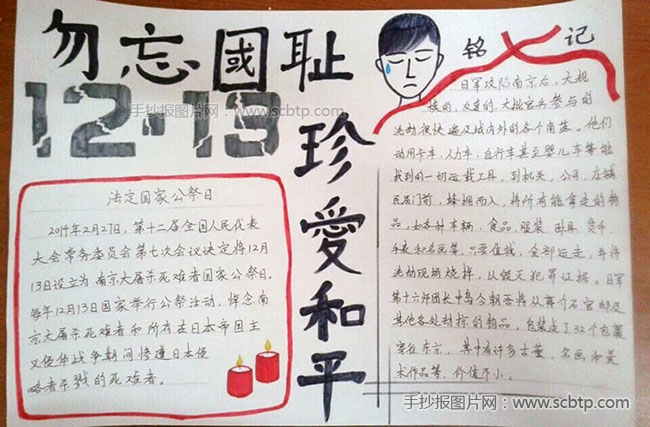 勿忘國耻
12·13
手抄报图片网：www.scbtp.com
珍愛和平
法定国家公祭日
2014年2月27日，第十二届全国人民代表
大会常务委员会第七次会议决定将12月
13日设立为南京大屠杀死难者国家公祭日。
每年12月13日国家举行公祭活动，悼念南
京大屠杀死难者和所有在日本帝国主
义侵华战争期间惨遭日本侵
略者杀戮的死难者。
铭记
日军攻陷南京后，大规
模的，大批官兵参与的
活动很快遍及城内外的各个角落。他们
动用卡车、人力车、自行车甚至婴儿车等能
找到的一切运载工具，到机关，公司，店铺
民居门前，蜂拥而入，将所有能拿走的物
品，如各种车辆、食品、服装、卧具、货币
手表和名画等，只要值钱，全部运走，并将
活动现场烧掉，以毁灭犯罪证据。日军
第十六师团长中岛今朝吾将从蒋介石官邸及
其他各处劫掠的物品，包装成了32个包裹
寄往东京，其中有许多古董、名画和美
术作品等，价值不小。
手抄报图片网：www.scbtp.com